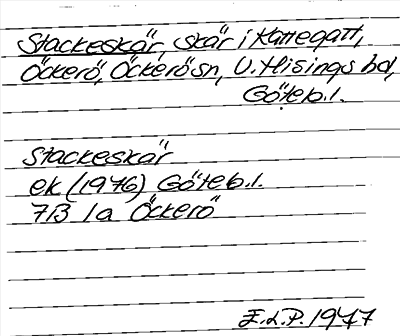 Stackeskär, skär i Kattegatt,
Öckerö, Öckerö sn, V. Hisings hd,
Göteb. l.
Stackeskär
ek (1976) Göteb. l.
7B 1a Öckerö
E.L.P. 1977